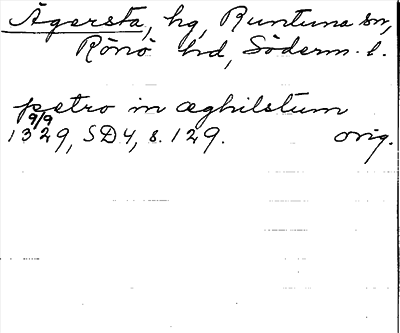 Ägersta, hg, Runtuna sn,
Rönö hd, Söderm. l.
petro in æghilstum
9/9
1329, SD4, s. 129. orig.